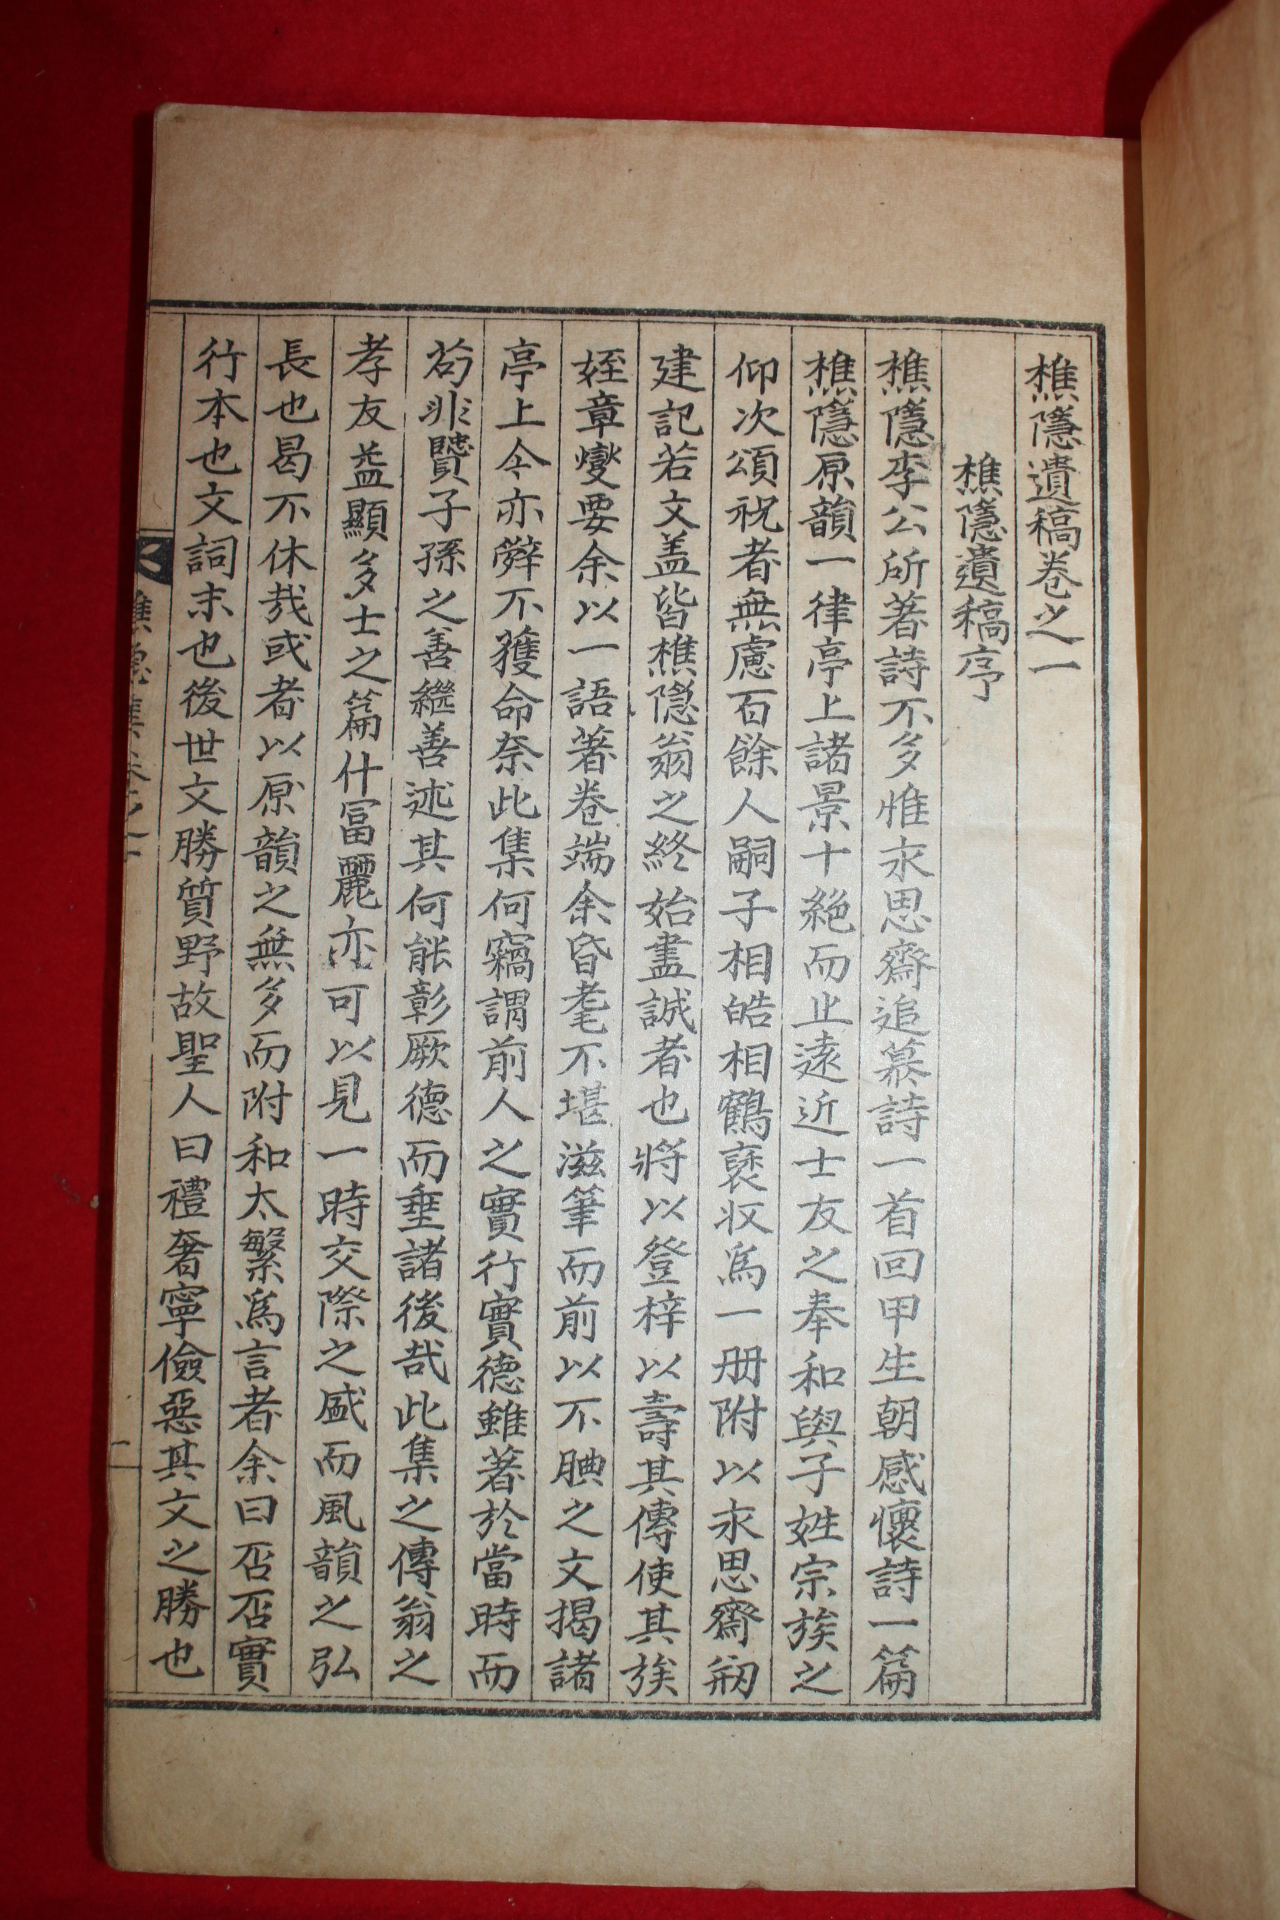 樵隱遺稿卷之一
樵隱遺稿序
樵隱李公所著詩不多惟永思齋追慕詩一首回甲生朝感懷詩一篇
樵隱原韻一律亭上諸景十絶而止遠近士友之奉和與子姓宗族之
仰次頌祝者無慮百餘人嗣子相皓相鶴裒収爲一册附以永思齋刱
建記若文盖皆樵隱翁之終始盡誠者也將以登梓以壽其傳使其族
姪章燮要余以一語著卷端余昏耄不堪滋筆而前以不腆之文揭諸
亭上今亦辭不獲命奈此集何竊謂前人之實行實德雖著於當時而
苟非賢子孫之善繼善述其何能彰厥德而垂諸後哉此集之傳翁之
孝友益顯多士之篇什冨麗亦可以見一時交際之盛而風韻之弘
長也曷不休哉或者以原韻之無多而附和太繁爲言者余曰否否實
行本也文詞末也後世文勝質野故聖人曰禮奢寧儉惡其文之勝也
樵隱集卷之一
二